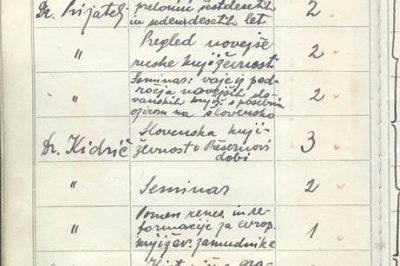 Dr. Prijatelj prelomu šestdesetih 2
in sedemdesetih let
" Pregled novejše 2
ruske književnosti
" Seminar: vaje iz pod- 2
ročja novejših slo-
vanskih knjiž. s posebnim
ozirom na slovensko
Dr. Kidrič Slovenska knji- 3
ževnost v Prešernovi
dobi
" Seminar 2
" Pomen renes. in re- 1
formacije za evrop.
književ. zamudnike